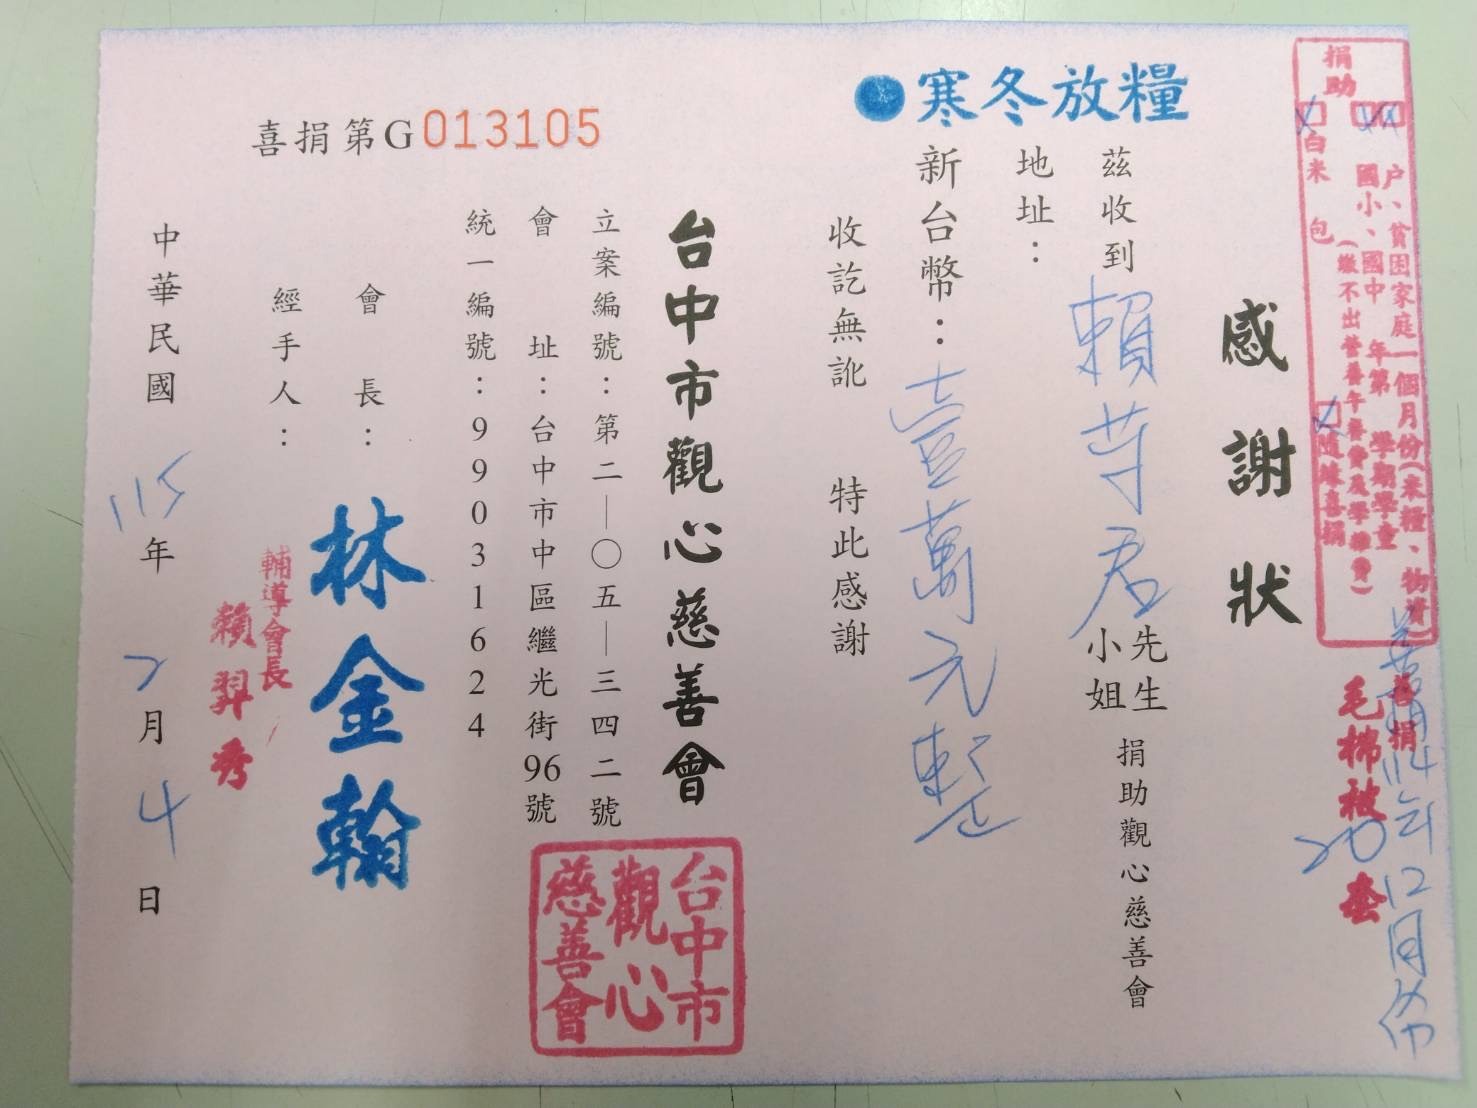 捐助
户、貧困家庭一個月份(米糧、物資)
國小、國中 年第 學期學童
(繳不出營養午餐費及學雜費)
白米 包 隨緣喜捐
喜捐
毛棉被 20 套
114年12月份
感謝狀
●寒冬放糧
茲收到 賴苓君 先生 小姐 捐助觀心慈善會
地址：
新台幣：壹萬元整
收訖無訛 特此感謝
喜捐第G013105
台中市觀心慈善會
立案編號：第二—〇五—三四二號
會址：台中市中區繼光街96號
統一編號：99031624
台中市觀心慈善會
會長：林金翰
經手人：
輔導會長
賴羿秀
中華民國 115 年 2 月 4 日